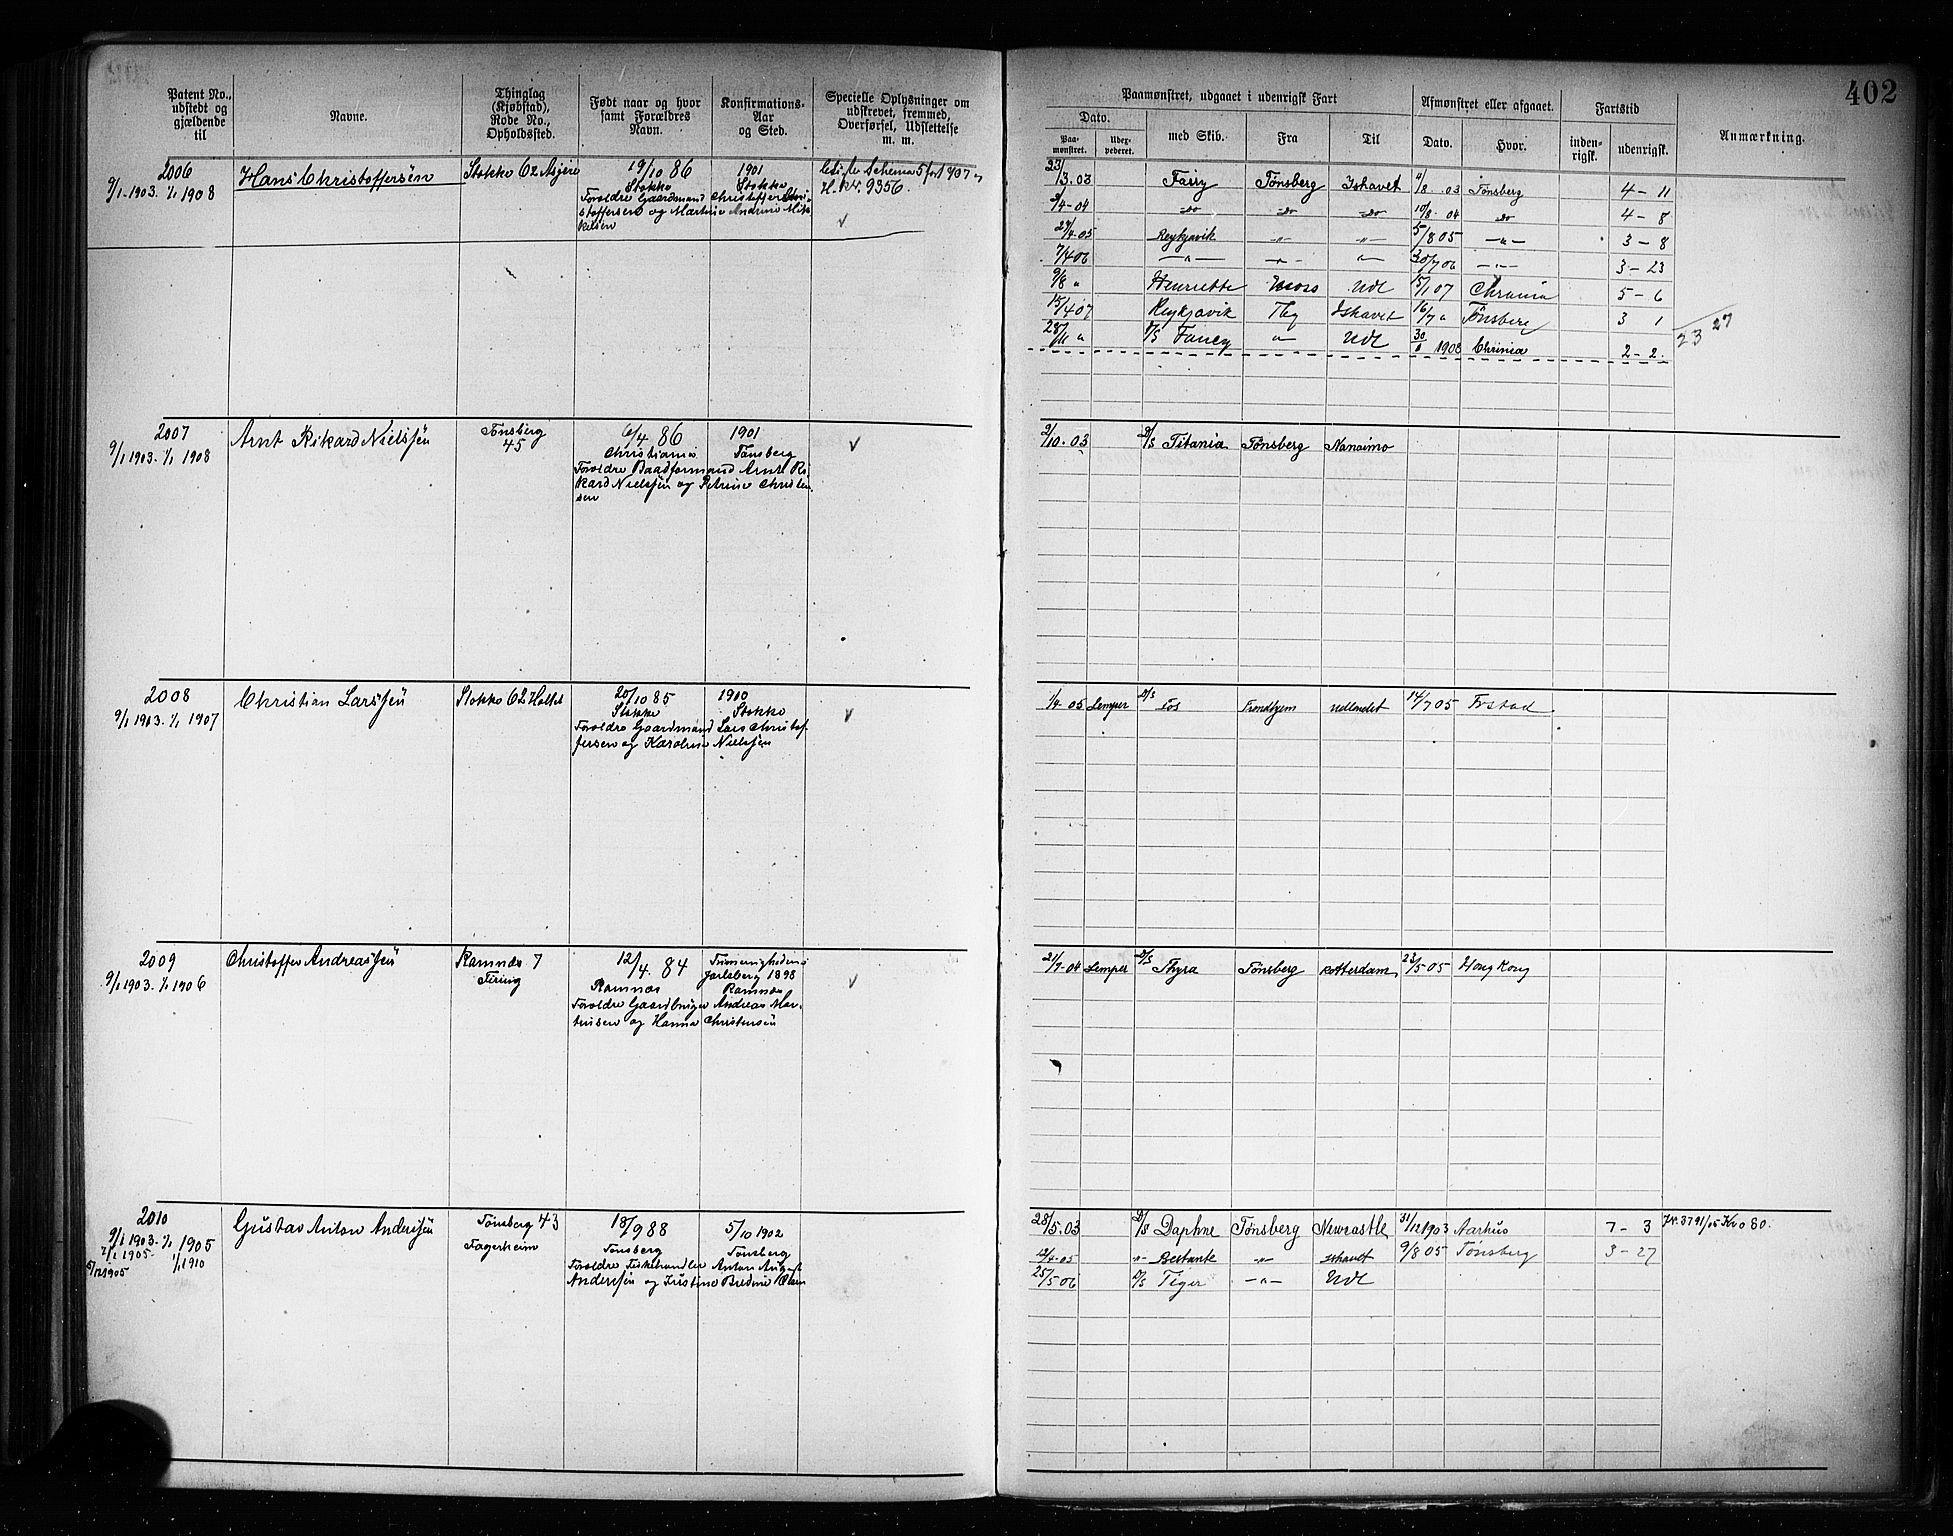 402
Patent No., udstedt og gjældende til
Navne.
Thinglag (Kjøbstad), Rode No., Opholdssted.
Født naar og hvor samt Forældres Navn.
Konfirmations- Aar og Sted.
Specielle Oplysninger om udskrevet, fremmed, Overførsel, Udslettelse m. m.
Paamønstret, udgaaet i udenrigsk Fart
Afmønstret eller afgaaet.
Fartstid
Anmærkning.
Dato.
Paa- mønstret.
Udex- pederet.
med Skib.
Fra
Til
Dato.
Hvor.
inden- rigsk.
udenrigsk.
2006
9/1 1903. 1/1 1908
Hans Christoffersen
Stokke 62
19/10 86
Stokke
Forældre Gaardmand Christoffer
stoffersen og Martine Andrine Mik
kelsen
1901
Stokke
Schema 5 for 1907
9356
√
23/3.03 Fairy Tønsberg Ishavet 11/8 .03 Tønsberg 4 - 11
/4-04 do do do 10/8. 04 do 4 - 8
27/4.05 Reykjavik -"- -"- 5/8 05 -"- 3 - 8
7/4 06 -"- -"- -"- 30/7 06 -"- 3 - 23
9/8 " Henriette Moss Udl 15/1 07 Chrania 5 - 6
15/4 07 Reykjavik Tbg Ishavet 16/7 " Tønsberg 3 1
28/11 " Fancy " Udl 30/1 1908 Chrania 2 - 2.
23 27
2007
9/1 1903. 1/1 1908
Arnt Rikard Nielsen
Tønsberg
45
6/4 86
Christiania
Forældre Baadformand Arnt Ri
kard Nielsen og Petrine Christen
sen
1901
Tønsberg
√
2/10.03 D/S Titania Tønsberg Nanaimo
2008
9/1 1903. 1/1 1907
Christian Larssen
Stokke 62 Holtet
20/10 85
Stokke
Forældre Gaardmand Lars Christof-
fersen og Karoline Nielsen
1910
Stokke
√
1/4 05 Semper D/S Eos Trondhjem Udlandet 14/7 05 Frstad
2009
9/1 1903. 1/1 1906
Christoffer Andreassen
Ramnæs 7
12/4. 84
Ramnæs
Forældre Gaardbruger Andreas Mar-
tinsen og Hanna Christensen
Frimenigheden i
Jarlsberg 1898
Ramnæs
√
21/7.04 Semper D/S Thyra Tønsberg Rotterdam 23/5 05 Hong Kong
2010
9/1 1903. 1/1 1905
7/1 1905.
1/1 1910
5/12 1905
Gustav Anton Andersen
Tønsberg 43
Fagerheim
18/9 88
Tønsberg
Forældre Fiskehandler Anton August
Andersen og Kristine Bredine Olsen
5/10 1902
Tønsberg
28/5.03 D/S Daphne Tønsberg Newcastle 31/12 1903 Aarhus 7 - 3
12/4.05 "- -"- Ishavet 9/8 05 Tønsberg 3 - 27
25/5 06 D/S Tiger -"- Udl
Jr. 3791/05 Kr 0 80.